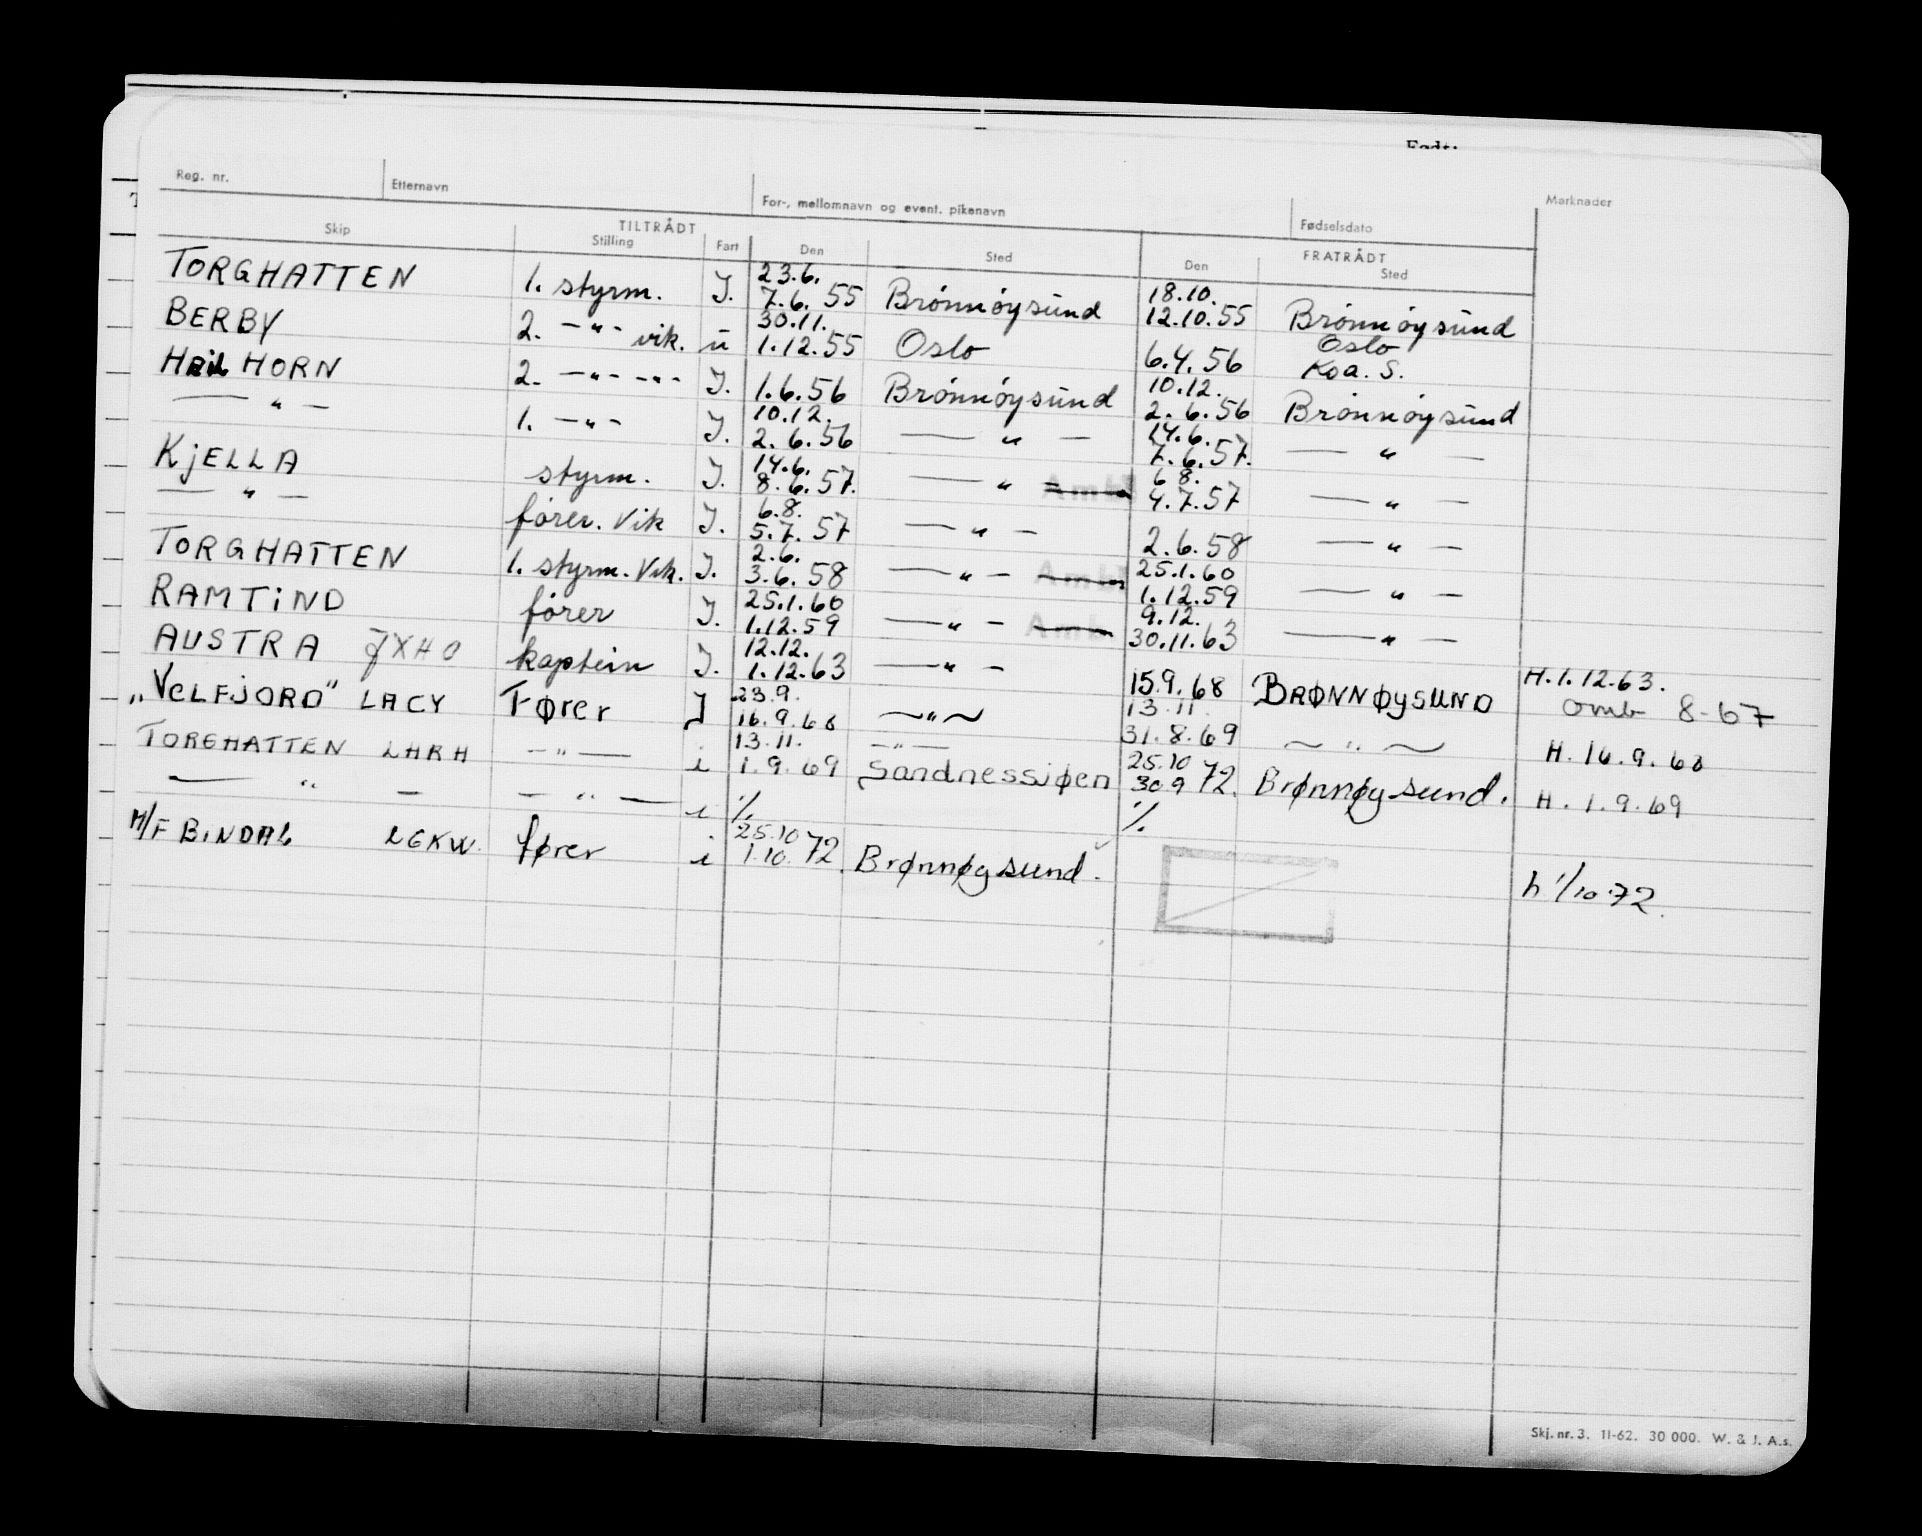 Født:
Reg. nr. Etternavn For-, mellomnavn og event. pikenavn Fødselsdato Marknader
TILTRÅDT FRATRÅDT
Skip Stilling Fart Den Sted Den Sted
TORGHATTEN 1. styrm. J. 23.6. 7.6. 55 Brønnøysund 18.10. 12.10.55 Brønnøysund
BERBY 2. —"— vik. u 30.11. 1.12.55 Oslo 6.4.56 Oslo Koa. S.
HEIL HORN 2. —"— —"— J. 1.6.56 Brønnøysund 10.12. 2.6.56 Brønnøysund
—"— 1. —"— J. 10.12. 2.6.56 —"— 14.6. 7.6.57. —"—
KjELLA styrm. J. 14.6. 8.6.57. —"— 6.8. 4.7.57 —"—
—"— fører. Vik J. 6.8. 5.7.57 —"— 2.6.58 —"—
TORGHATTEN 1. styrm. Vik. J. 2.6. 3.6.58 —"— 25.1.60 1.12.59 —"—
RAMTiND fører J. 25.1.60 1.12.59 —"— 9.12. 30.11.63 —"—
AUSTRA JXHO kaptein J. 12.12. 1.12.63 —"— 15.9.68 BRØNNØYSUND H.1.12.63. omb 8-67
„VELFJORD" LACY Fører J 23.9. 16.9.68 —"— 13.11. 31.8.69 —"— H. 16.9.68
TORGHATTEN LHRH —"— i 13.11. 1.9.69 —"— Sandnessjøen 25.10 30.9 72. Brønnøysund. H. 1.9.69
—"— — —"— i %. %.
M/F BINDAL LGKW. fører i 25.10 1.10. 72. Brønnøysund. h 1/10-72.
Skj. nr. 3. 11-62. 30 000. W. & J. A.s.